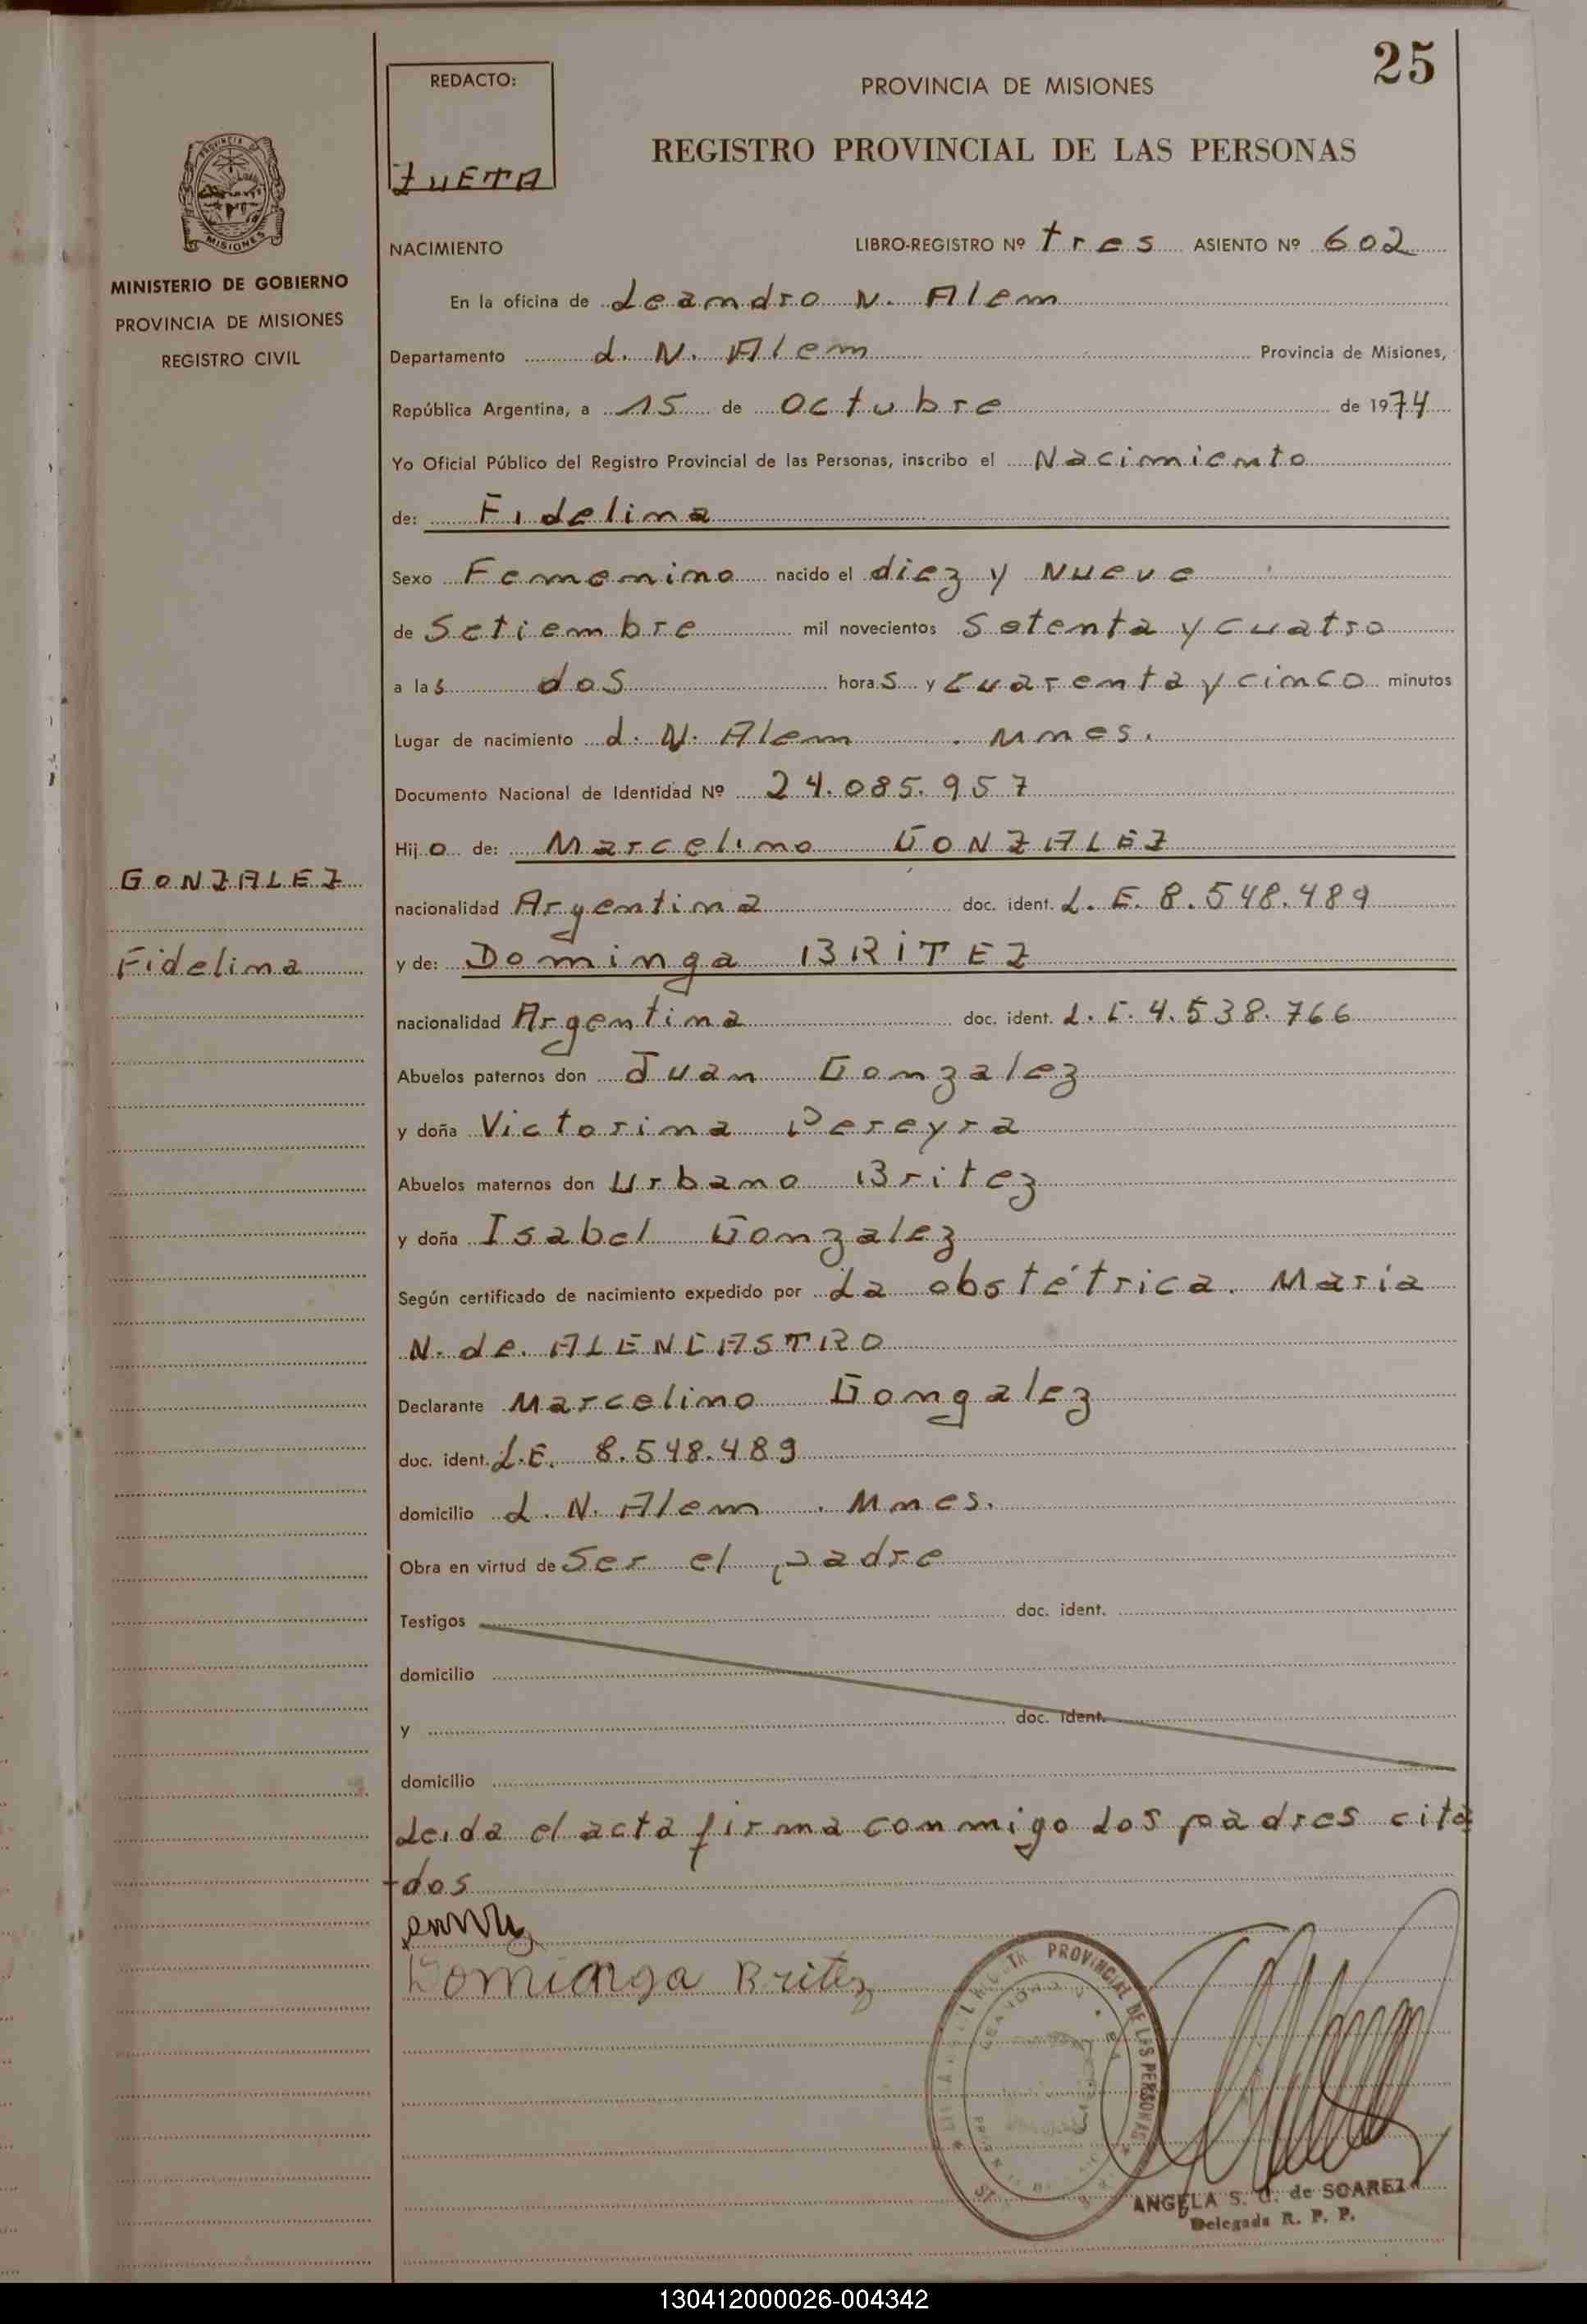 25
REDACTO:
ZUETA
PROVINCIA DE MISIONES
REGISTRO PROVINCIAL DE LAS PERSONAS
PROVINCIA
MISIONES
MINISTERIO DE GOBIERNO
PROVINCIA DE MISIONES
REGISTRO CIVIL
NACIMIENTO LIBRO-REGISTRO Nº tres ASIENTO Nº 602
En la oficina de Leandro N. Alem
Departamento L. N. Alem Provincia de Misiones,
República Argentina, a 15 de Octubre de 1974
Yo Oficial Público del Registro Provincial de las Personas, inscribo el Nacimiento
de: Fidelina
Sexo Femenino nacido el diez y Nueve
de Setiembre mil novecientos Setenta y cuatro
a las dos horas y Cuarenta y cinco minutos
Lugar de nacimiento L. N. Alem . Mnes.
Documento Nacional de Identidad Nº 24.085.957
Hijo de: Marcelino GONZALEZ
GONZALEZ
nacionalidad Argentina doc. ident. L. E. 8.548.489
Fidelina
y de: Dominga BRITEZ
nacionalidad Argentina doc. ident. L. C. 4.538.766
Abuelos paternos don Juan Gonzalez
y doña Victorina Pereyra
Abuelos maternos don Urbano Britez
y doña Isabel Gonzalez
Según certificado de nacimiento expedido por La obstétrica. Maria
N. de. ALENCASTRO
Declarante Marcelino Gonzalez
doc. ident. L.E. 8.548.489
domicilio L. N. Alem . Mnes.
Obra en virtud de Ser el padre
Testigos doc. ident.
domicilio
y doc. ident.
domicilio
Leida el acta firma conmigo Los padres cita
-dos
Dominga Britez
PROVINCIAL DE LAS PERSONAS
ANGELA S. G. de SOAREZ
Delegada R. P. P.
130412000026-004342